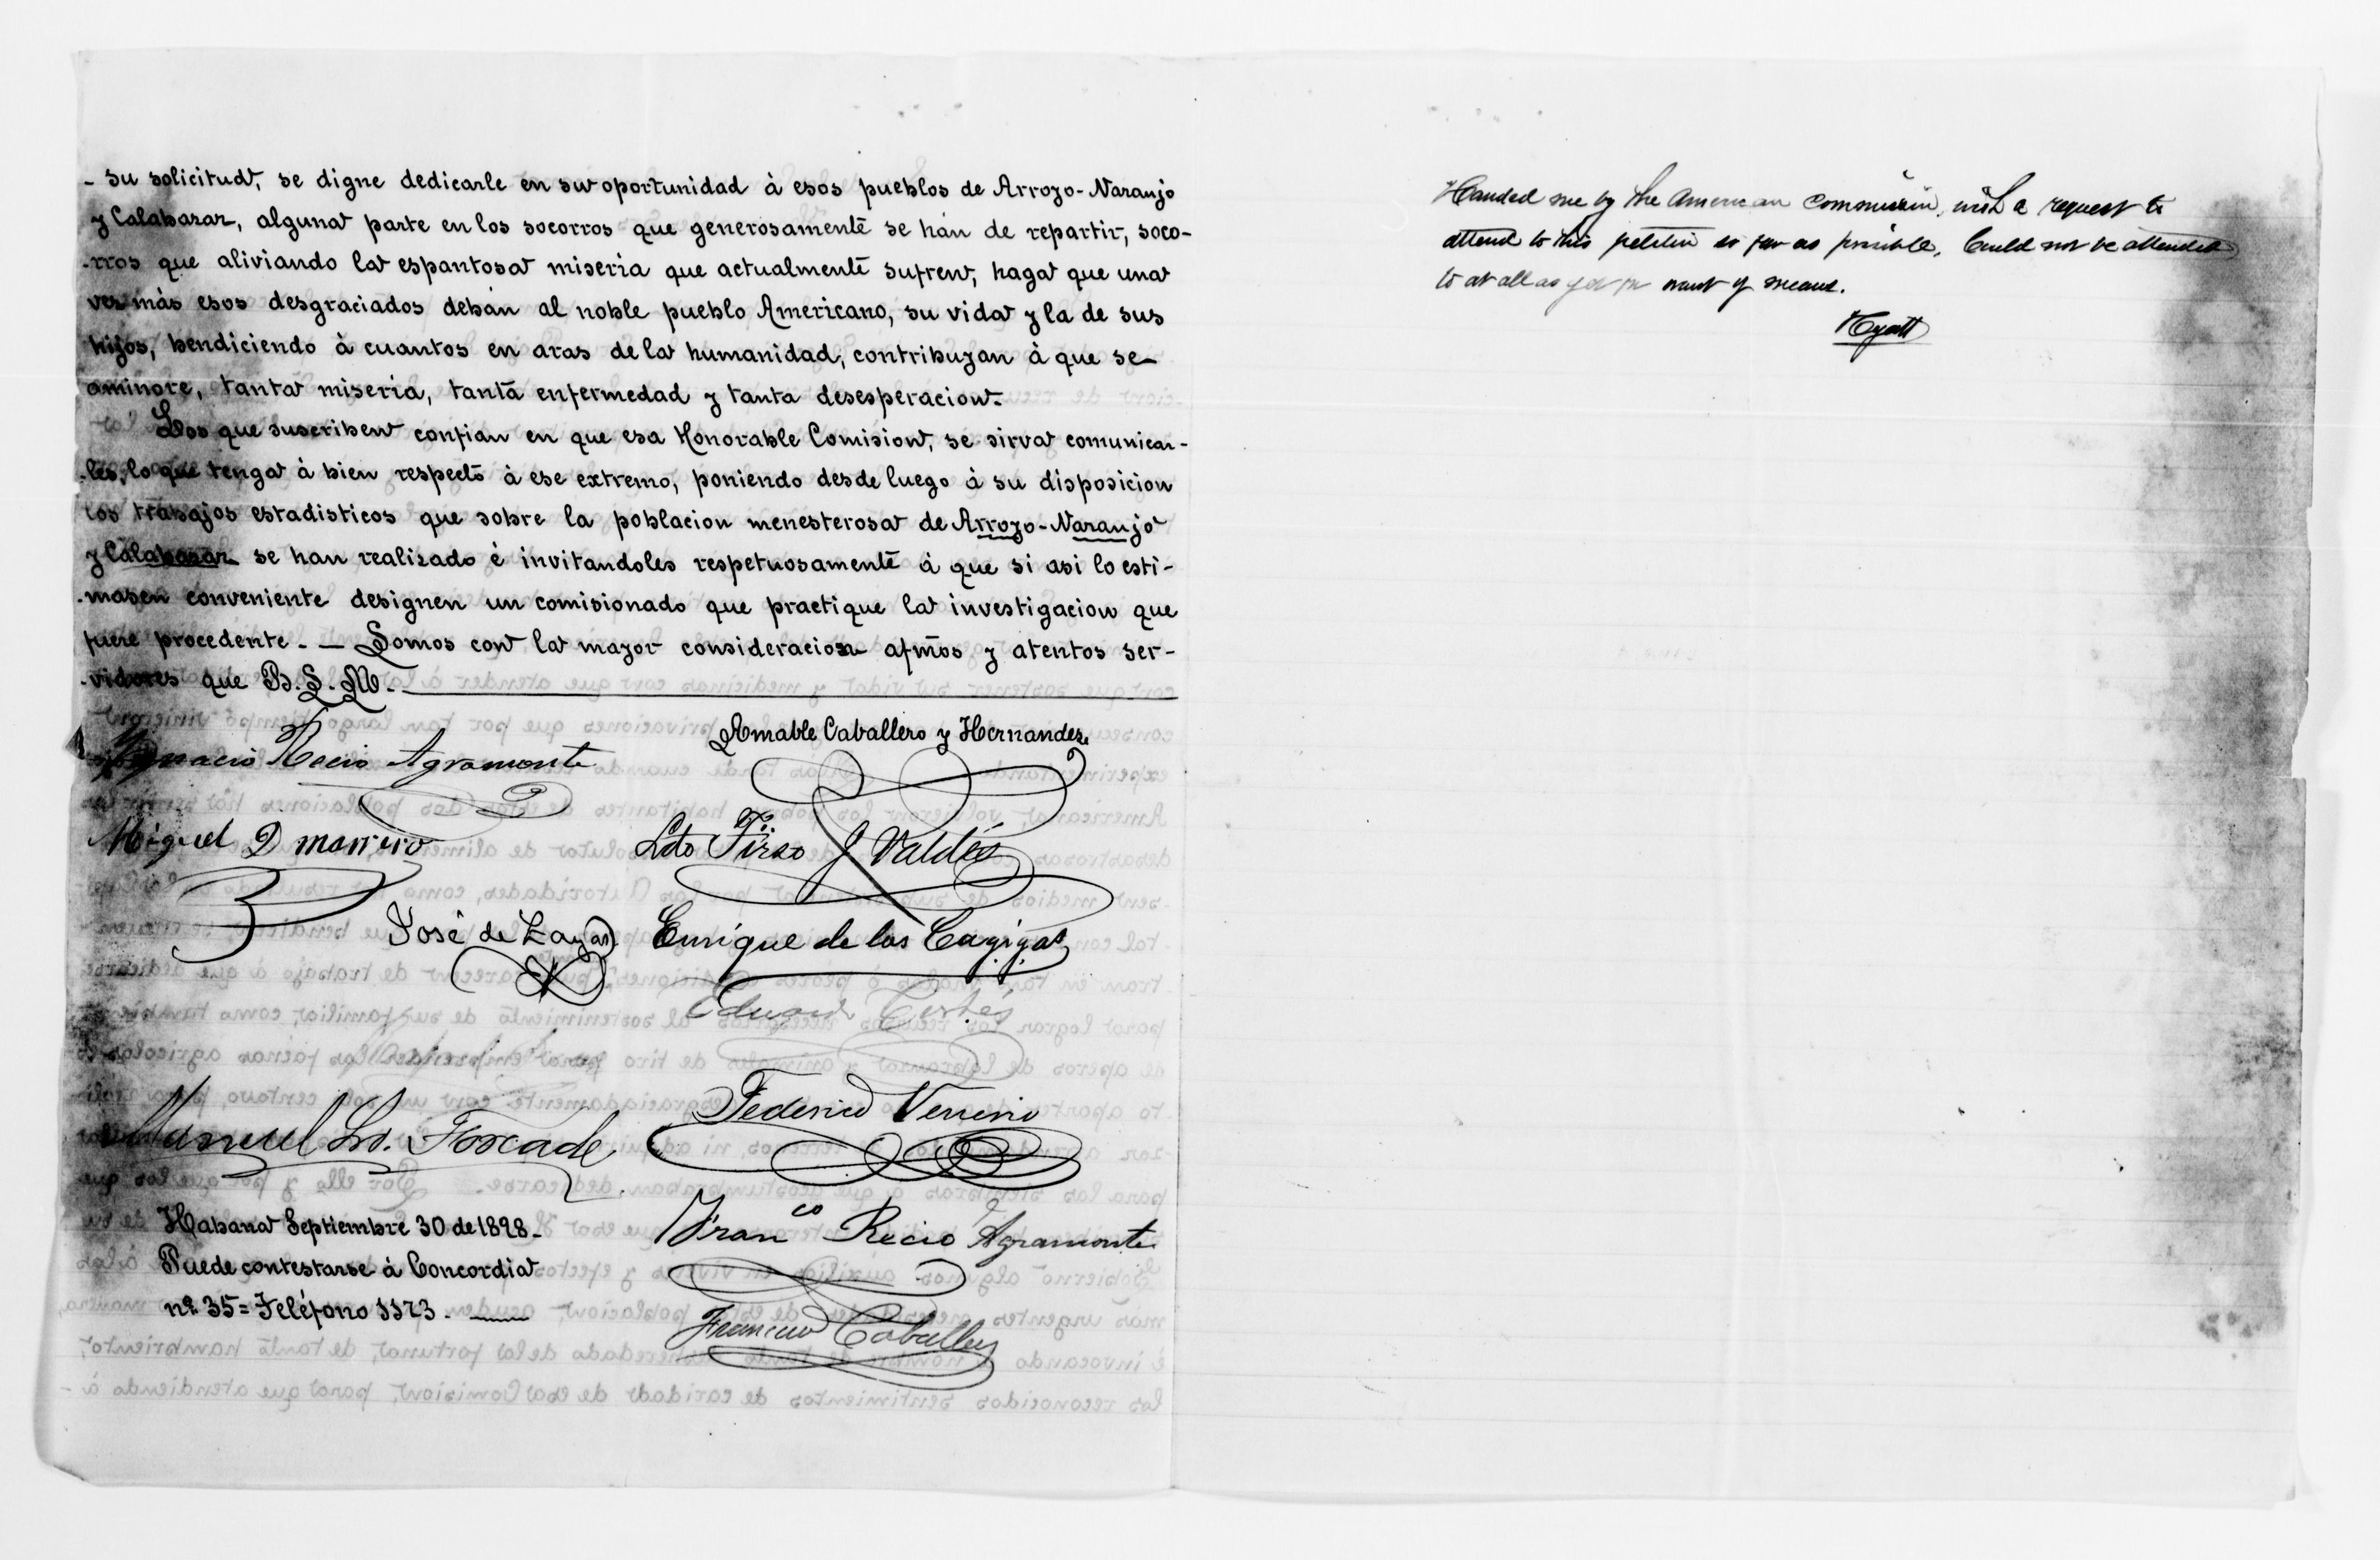 - su solicitud, se digne dedicarle en su oportunidad à esos pueblos de Arroyo-Naranjo
y Calabazar, alguna parte en los socorros que generosamente se han de repartir, soco-
-rros que aliviando la espantosa miseria que actualmente sufren, haga que una
vez más esos desgraciados deban al noble pueblo Americano, su vida y la de sus
hijos, bendiciendo à cuantos en aras de la humanidad, contribuyan à que se
aminore, tanta miseria, tanta enfermedad y tanta desesperacion.
Los que suscriben confian en que esa Honorable Comision, se sirva comunicar-
-les, lo que tenga à bien respecto à ese extremo, poniendo desde luego à su disposicion
los trabajos estadisticos que sobre la poblacion menesterosa de Arroyo-Naranjo
y Calabazar se han realizado é invitandoles respetuosamente à que si asi lo esti-
-masen conveniente designen un comisionado que practique la investigacion que
fuere procedente. — Somos con la mayor consideracion afmos y atentos ser-
-vidores que B. S. M.
Amable Caballero y Hernandez
Ygnacio Recio Agramonte
Miguel D Marrero
Ldo Tirso J Valdés
José de Zayas
Enrique de las Cagigas
Eduardo Cortés
Federico
Manuel Forcade
Franco Recio Agramonte
Francisco Caballero
Habana Septiembre 30 de 1898.
Puede contestarse à Concordia
nº 35 = Teléfono 1573.
Handed me by the American Commission, with a request to
attend to this petition so far as possible. Could not be attended
to at all as yet for want of means.
Hyatt